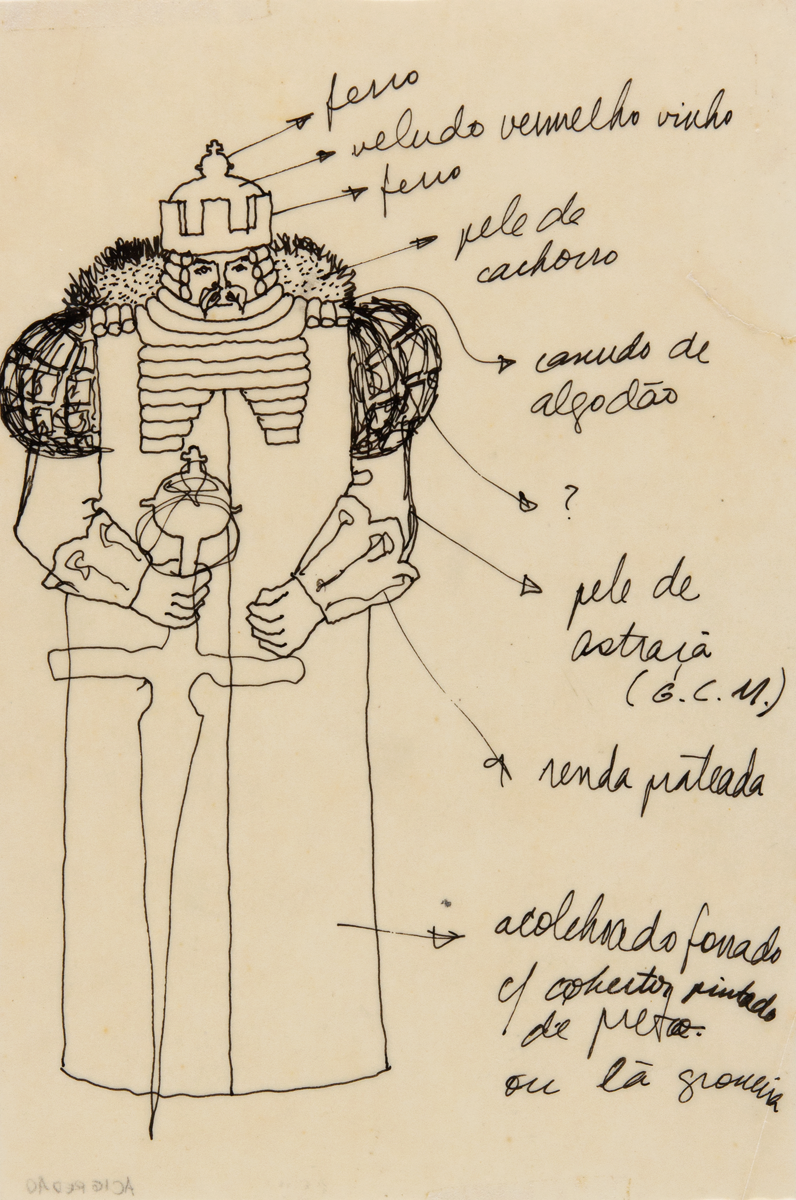 ferro
veludo vermelho vinho
ferro
pele de
cachorro
canudo de
algodão
?
pele de
astraçã
(G.C.M.)
renda prateada
acolchoado forrado
c/ cobertor pintado
de preto.
ou lã grosseira